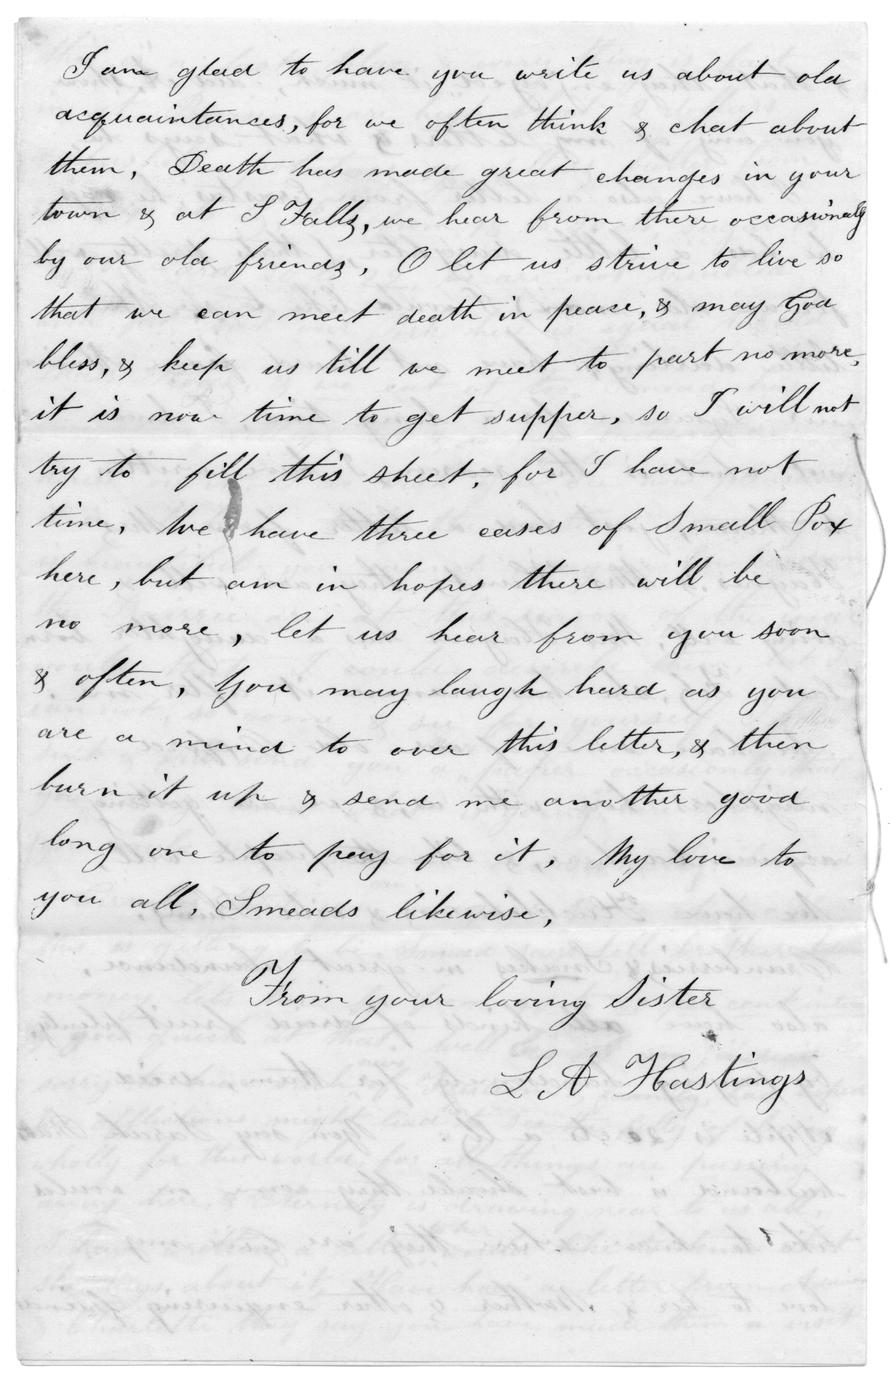 I am glad to have you write us about old
acquaintances, for we often think & chat about
them, Death has made great changes in your
town & at S Falls, we hear from there occasionaly
by our old friends, O let us strive to live so
that we can meet death in pease, & may God
bless, & keep us till we meet to part no more,
it is now time to get supper, so I will not
try to fill this sheet, for I have not
time, We have three cases of Small Pox
here, but am in hopes there will be
no more, let us hear from you soon
& often, You may laugh hard as you
are a mind to over this letter, & then
burn it up & send me another good
long one to pay for it, My love to
you all, Smeads likewise,
From your loving Sister
L A Hastings